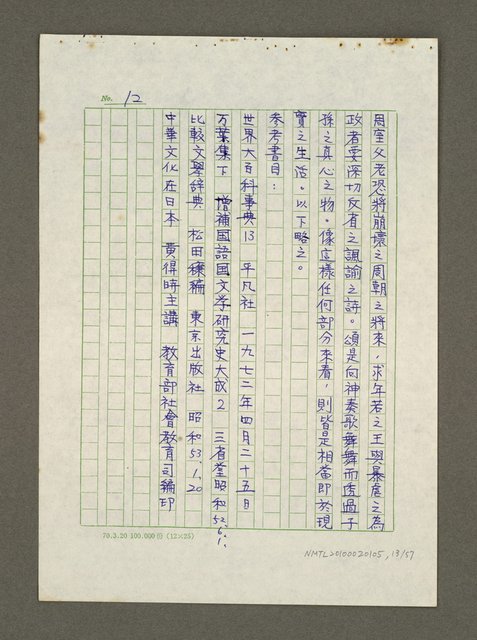 No. 12
周室父老恐將崩壞之周朝之將來，求年若之王與暴虐之為
政者要深切反省之諷諭之詩。頌是向神奏歌舞舞而透過子
孫之真心之物。像這樣任何部分來看，則皆是相當即於現
實之生活。以下略之。
參考書目：
世界大百科事典13 平凡社 一九七二年四月二十五日
万葉集下 增補国語国文学研究史大成2 三省堂昭和52.6.1.
比較文學辞典 松田穰編 東京出版社 昭和53.1.20
中華文化在日本 黃得時主講 教育部社會教育司編印
70.3.20 100.000份 (12×25)
NMTL20100020105, 13/57